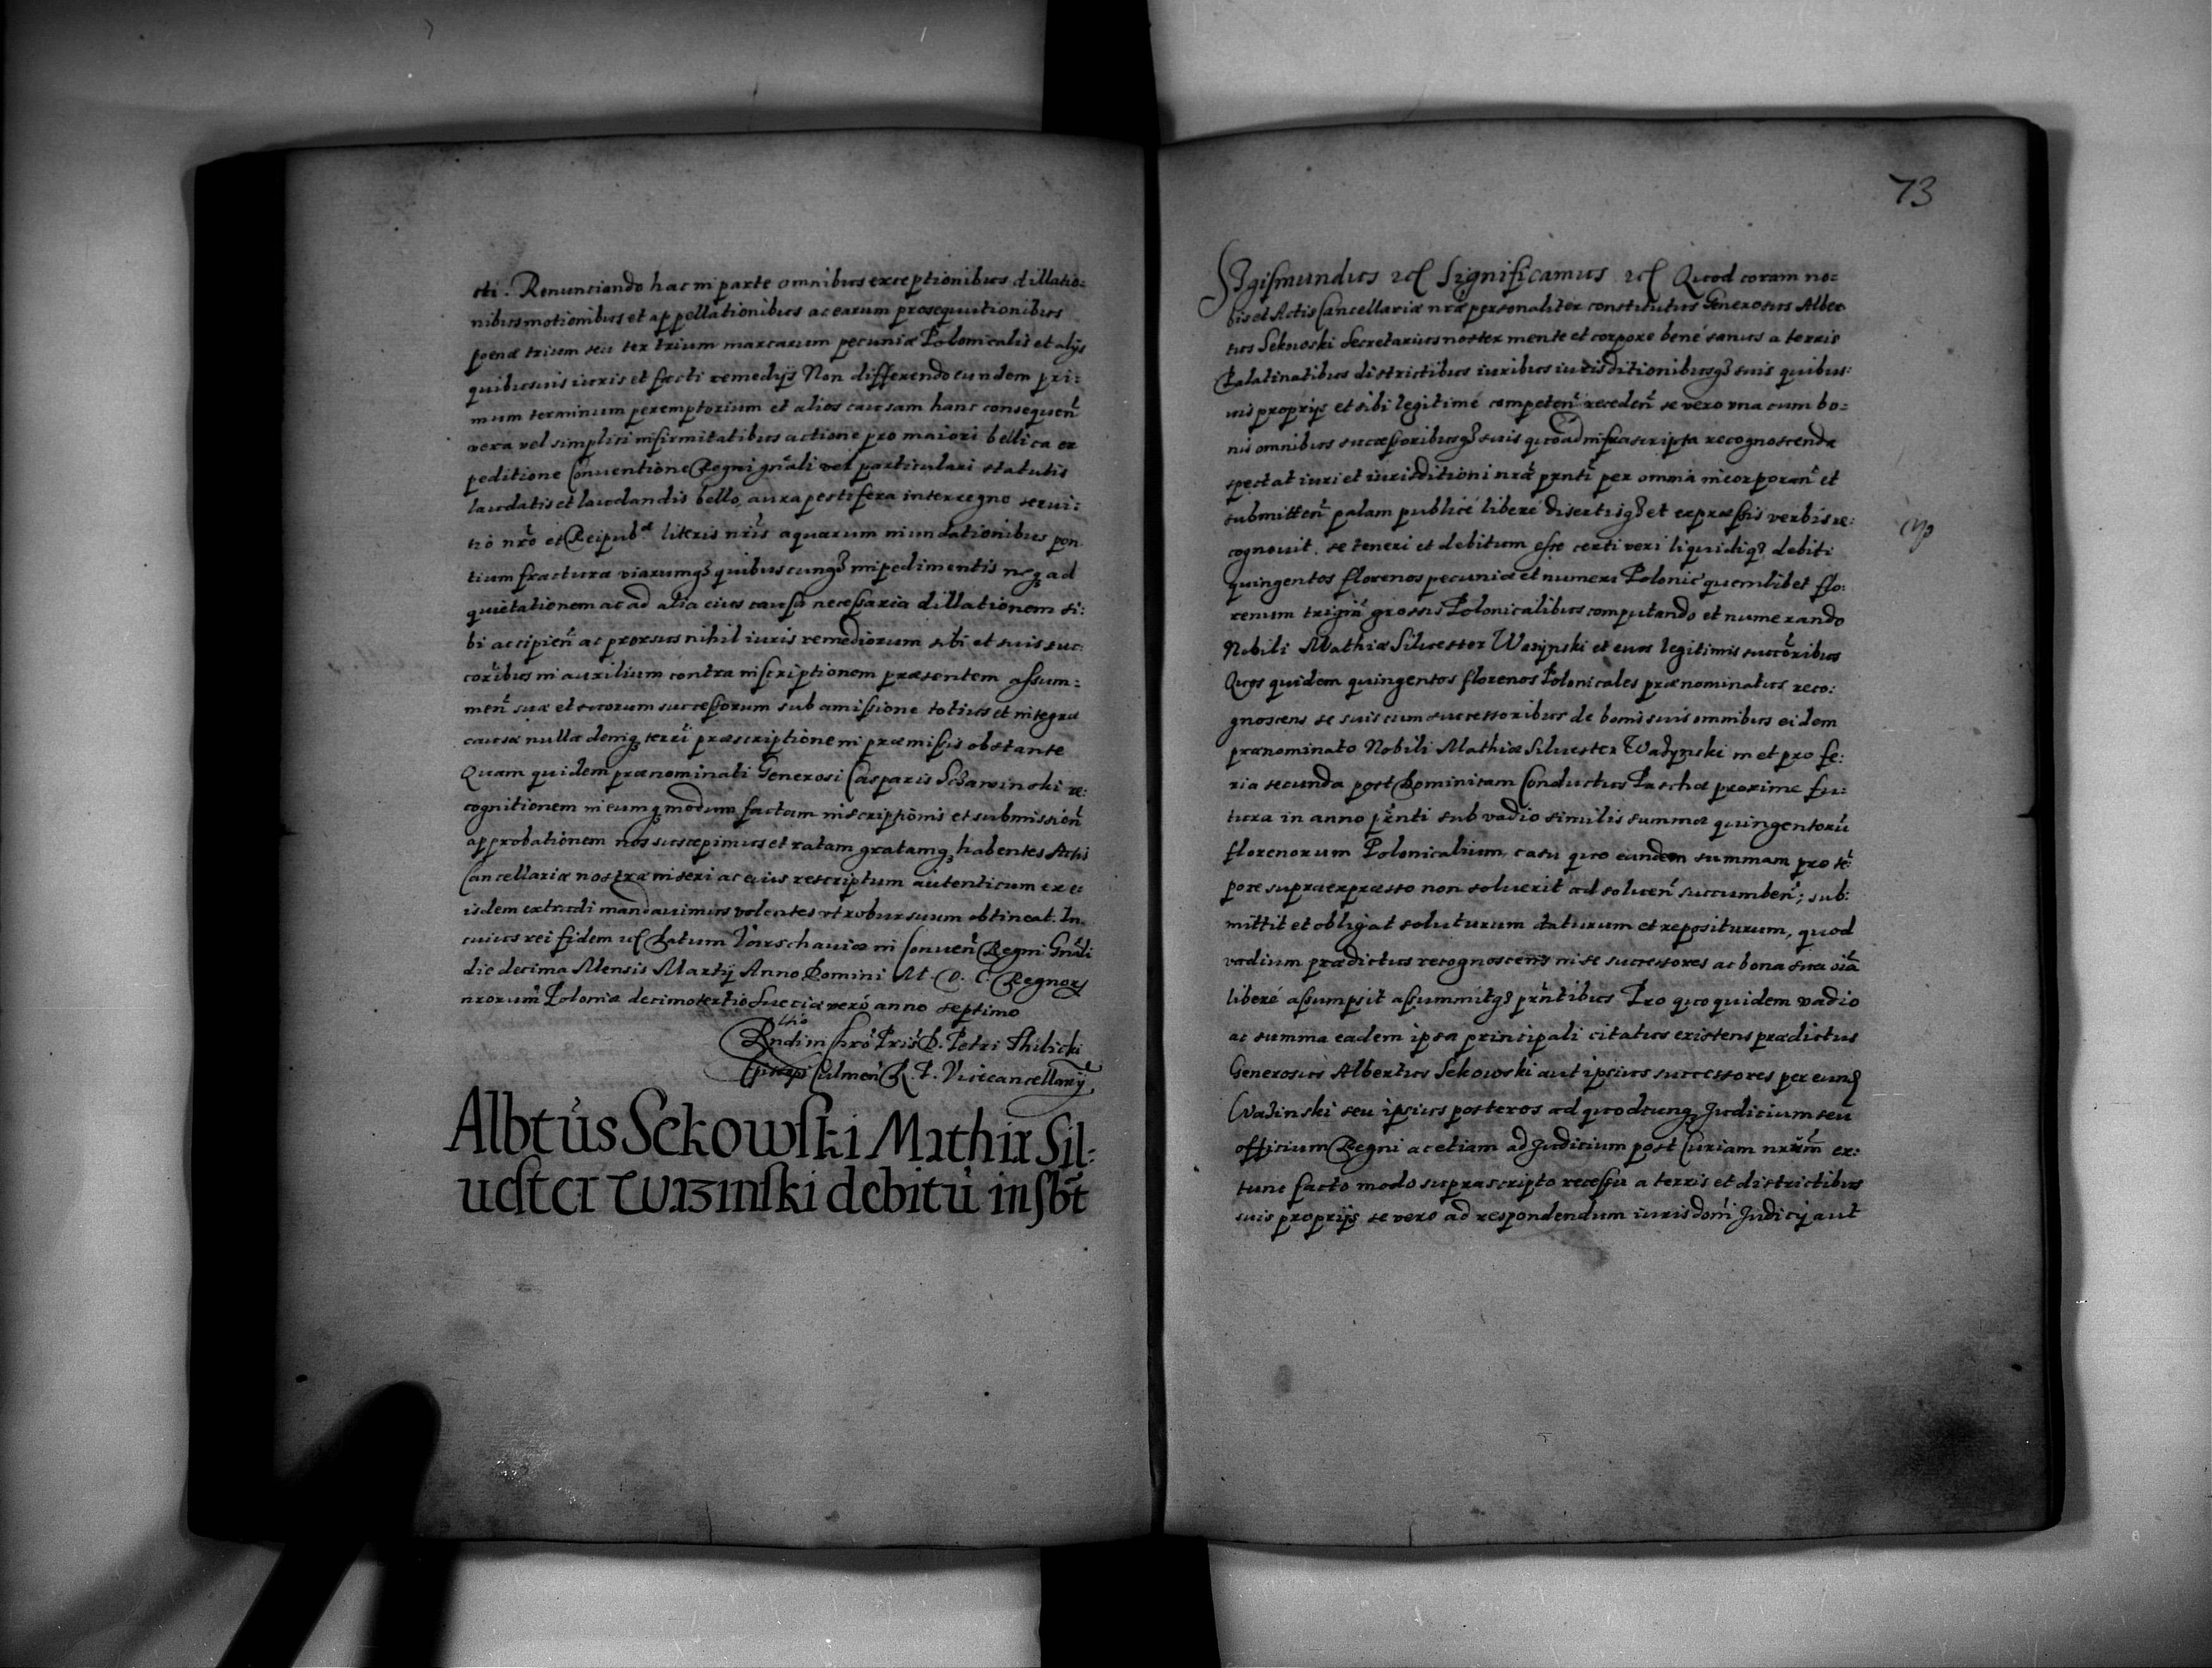 cti. Renunciando hac in parte omnibus exceptionibus dillatio=
nibus motionibus et appellationibus ac earum prosequutionibus
poenæ trium seu ter trium marcarum pecuniæ Polonicalis et alijs
quibusuis iuris et facti remedijs Non differendo eundem pri:
mum terminum peremptorium et alios causam hanc consequen̄
vera vel simplici infirmitatibus actione pro maiori bellica ex
peditione Conuentione Regni gn̄ali vel particulari statutis
laudatis et laudandis bello, aura pestifera interregno serui:
tio nr̄o et Reipub. literis nr̄is aquarum inundationibus pon
tium fractura viarumq3 quibuscunq3 impedimentis neq3 ad
quietationem ac ad alia eius causæ necessaria dillationem si:
bi accipien̄ ac prorsus nihil iuris remediorum sibi et suis suc:
coribus in auxilium contra inscriptionem præsentem assum=
men̄ suæ et suorum successorum sub amissione totius et integræ
causæ nulla demq3 terr̄i præscriptione in præmissis obstante
Quam quidem prænominati Generosi Casparis re:
cognitionem in eumq3 modum factam inscriptionis et submission̄
approbationem nos suscepimus et ratam gratamq3 habentes Actis
Cancellariæ nostræ inseri ac eius rescriptum autenticum ex e
isdem extradi mandauimus volentes vt robur suum obtineat. In
cuius rei fidem Datum Varschauiæ in Conuen̄ Regni Gn̄ali
die decima Mensis Martij Anno Domini M. D. C. Regnor
nrorum Poloniæ decimotertio Sueciæ vero anno septimo
Rndi in Chr̄o Pris D. Petri Thilicki
Episcopi Culmen̄ R. P. Vicecancellarij
Albtus Sekowski Mathiæ Sil:
uester Wazinski debitu insbt
73
SIgismundus Significamus Quod coram no=
bis et Actis Cancellariæ nr̄æ personaliter constitutus Generosus Alber
tus Sekowski Secretarius noster mente et corpore bene sanus a terris
Palatinatibus districtibus iuribus iurisditionibusq3 suis quibus:
uis proprijs et sibi legitime competen̄ receden̄ se vero vna cum bo=
nis omnibus successoribusq3 suis quoad infrascripta recognoscenda
spectat iuri et iurisditioni nr̄æ pr̄nti per omnia incorporan̄ et
submitten̄ palam publice libere disertisq3 et expressis verbis re:
cognouit, se teneri et debitum esse certi veri liquidiq3 debiti
quingentos florenos pecuniæ et numeri Polonic quemlibet flo:
renum trigin̄ grossis Polonicalibus computando et numerando
Nobili Mathiæ Siluester Wazynski et eius legitimis succ̄oribus
Quos quidem quingentos florenos Polonicales prænominatus reco:
gnoscens se suis cum successoribus de bonis suis omnibus eidem
prænominato Nobili Mathiæ Siluester Wazynski in et pro fe:
ria secunda post Dominicam Conductus Paschæ proxime fu:
tura in anno pr̄nti sub vadio similis summæ quingentorū
florenorum Polonicalium, casu quo eandem summam pro tē:
pore supraexpresso non soluerit ad soluen̄ succumben̄; sub:
mittit et obligat soluturum daturum et repositurum, quod
vadium prædictus recognoscens in se successores ac bona sua oīa
libere assumpsit assummitq3 pr̄ntibus Pro quo quidem vadio
ac summa eadem ipsa principali citatus existens prædictus
Generosus Albertus Sekowski aut ipsius successores per eund
Wazinski seu ipsius posteros ad quodcunq3 Judicium seu
officium Regni ac etiam ad Judicium post Curiam nr̄am ex:
tunc facto modo suprascripto recessu a terris et districtibus
suis proprijs se vero ad respondendum iurisdoni Judicij aut